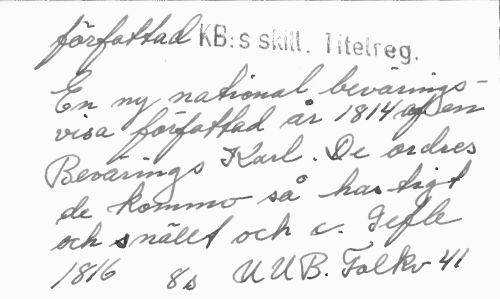 författad KB:s skill. Titelreg.
En ny national bevärings-
visa författad år 1814 af en
Bevärings Karl. De ordres
de kommo så hastigt
och snällt och c. Gefle
1816 8s UUB. Folkv 41